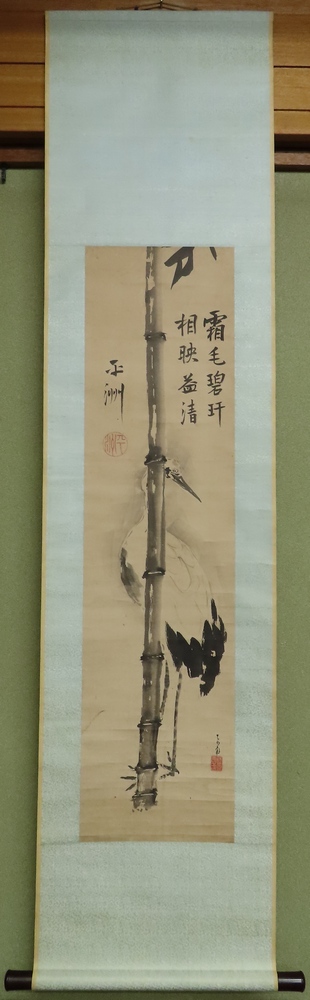 霜毛碧玕
相映益清
平洲